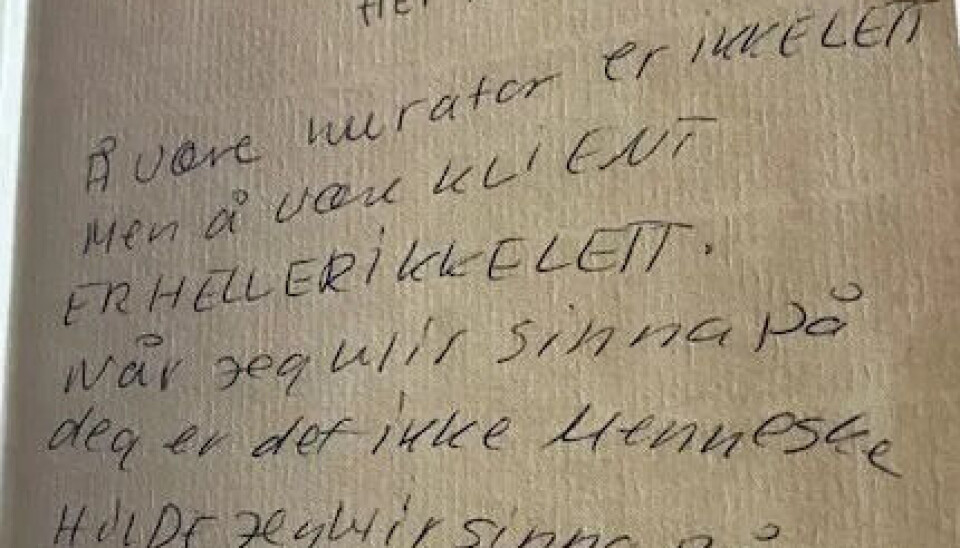 Å være kurator er iKKE LETT
Men å være KLiENT
ER HELLER iKKE LETT.
Når jeg blir sinna på
deg er det ikke Menneske
HiLDE jeg blir sinna på